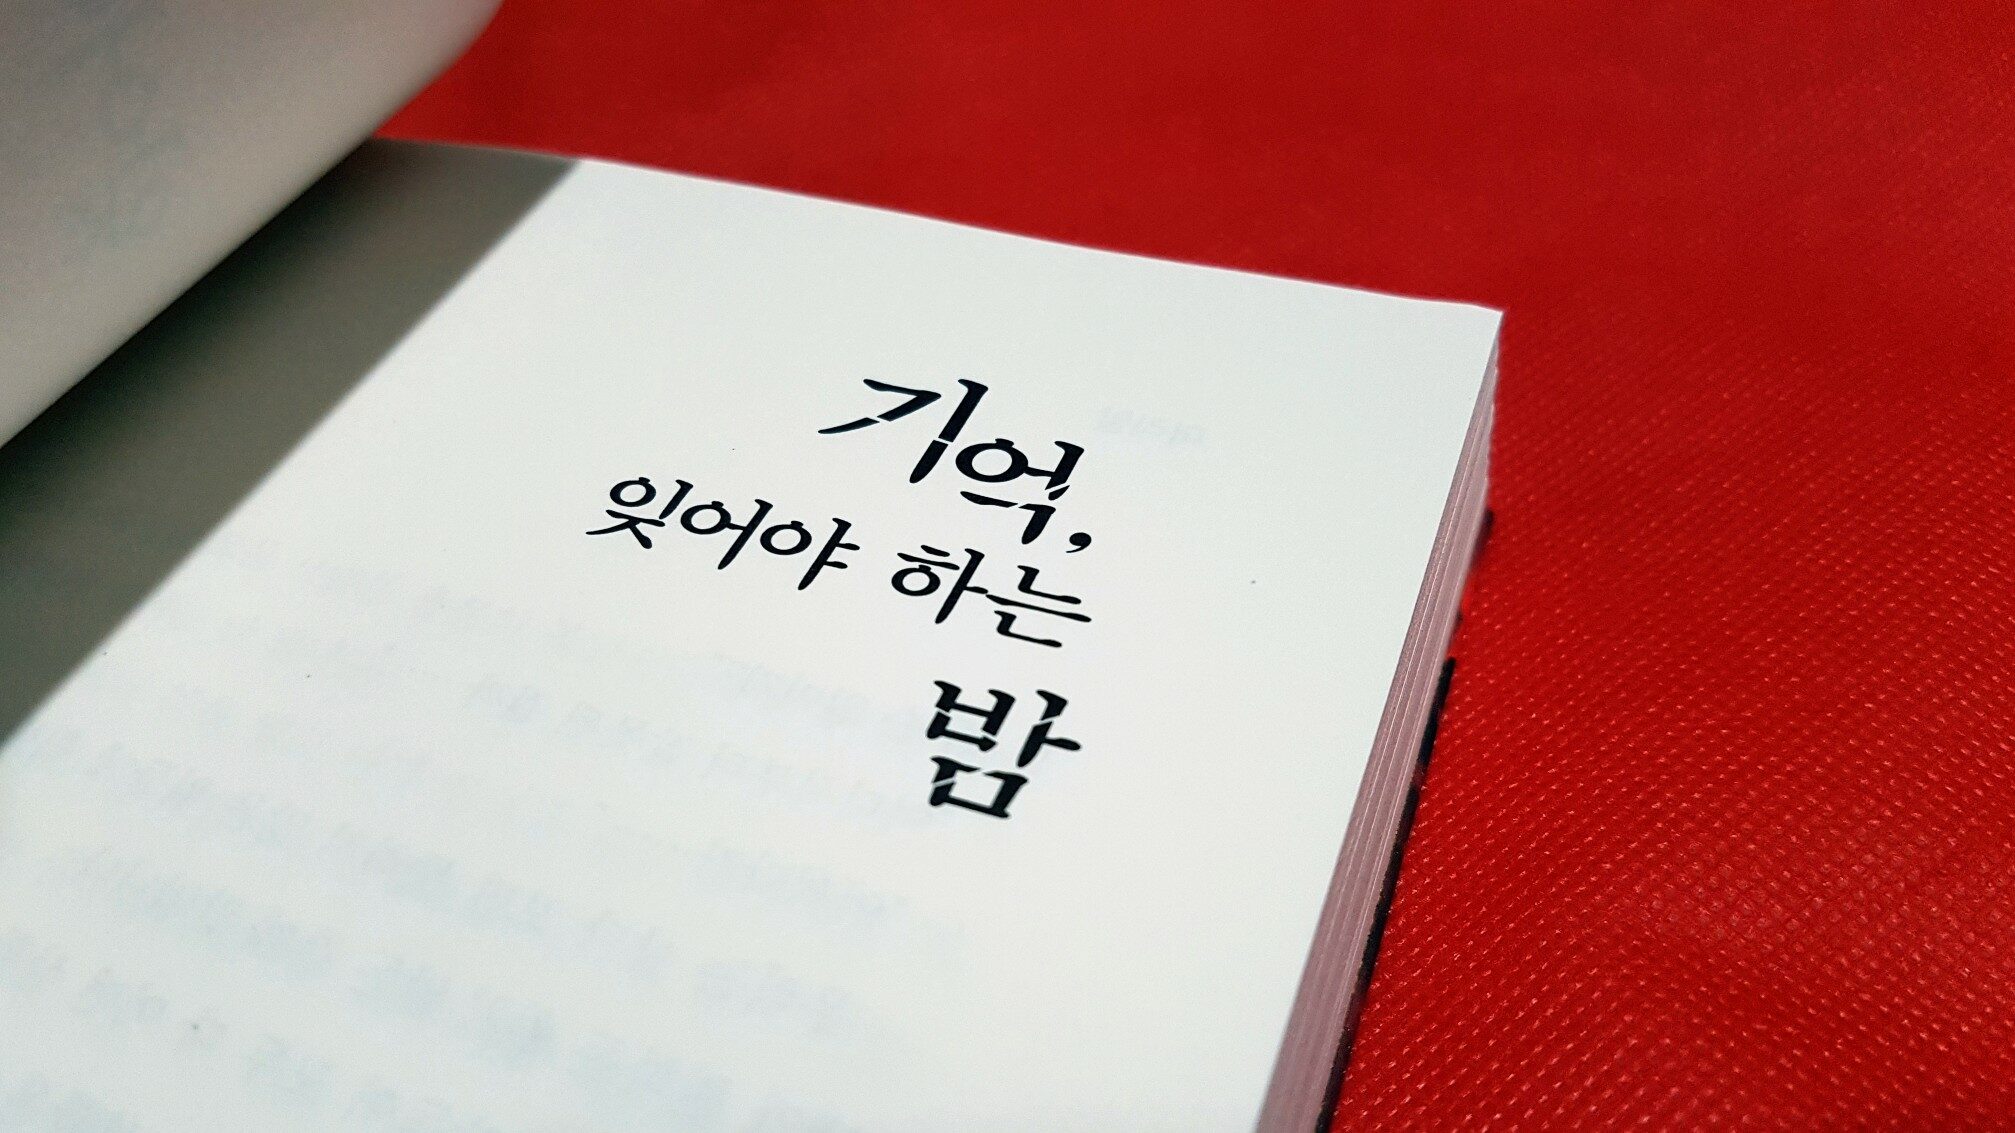 기억,
잊어야 하는
밤